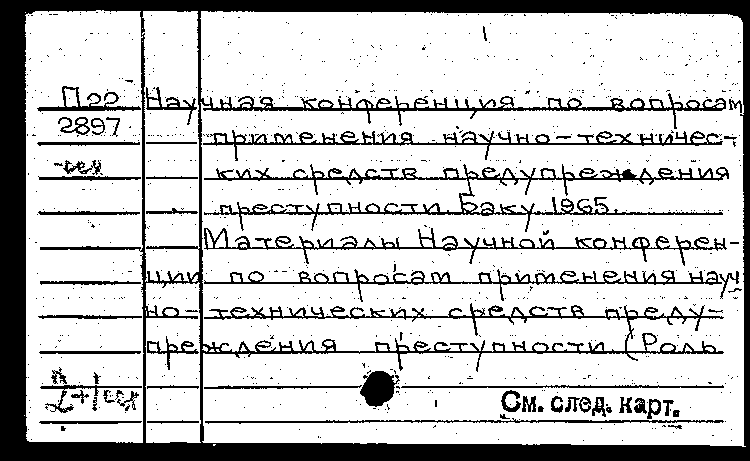 П22 Научная конференция по вопросам
2897 применения научно-техничес-
ких средств предупреждения
преступности. Баку. 1965.
Материалы Научной конферен-
ции по вопросам применения науч
но-технических средств преду-
преждения преступности (Роль
См. след. карт.